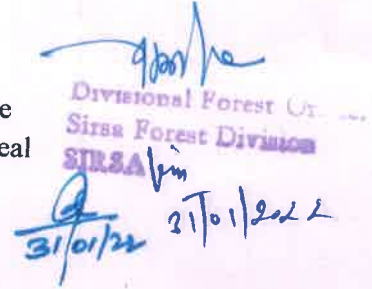 e
Divisional Forest
eal
Sirsa Forest Division
SIRSA
31/01/2022
31/01/22